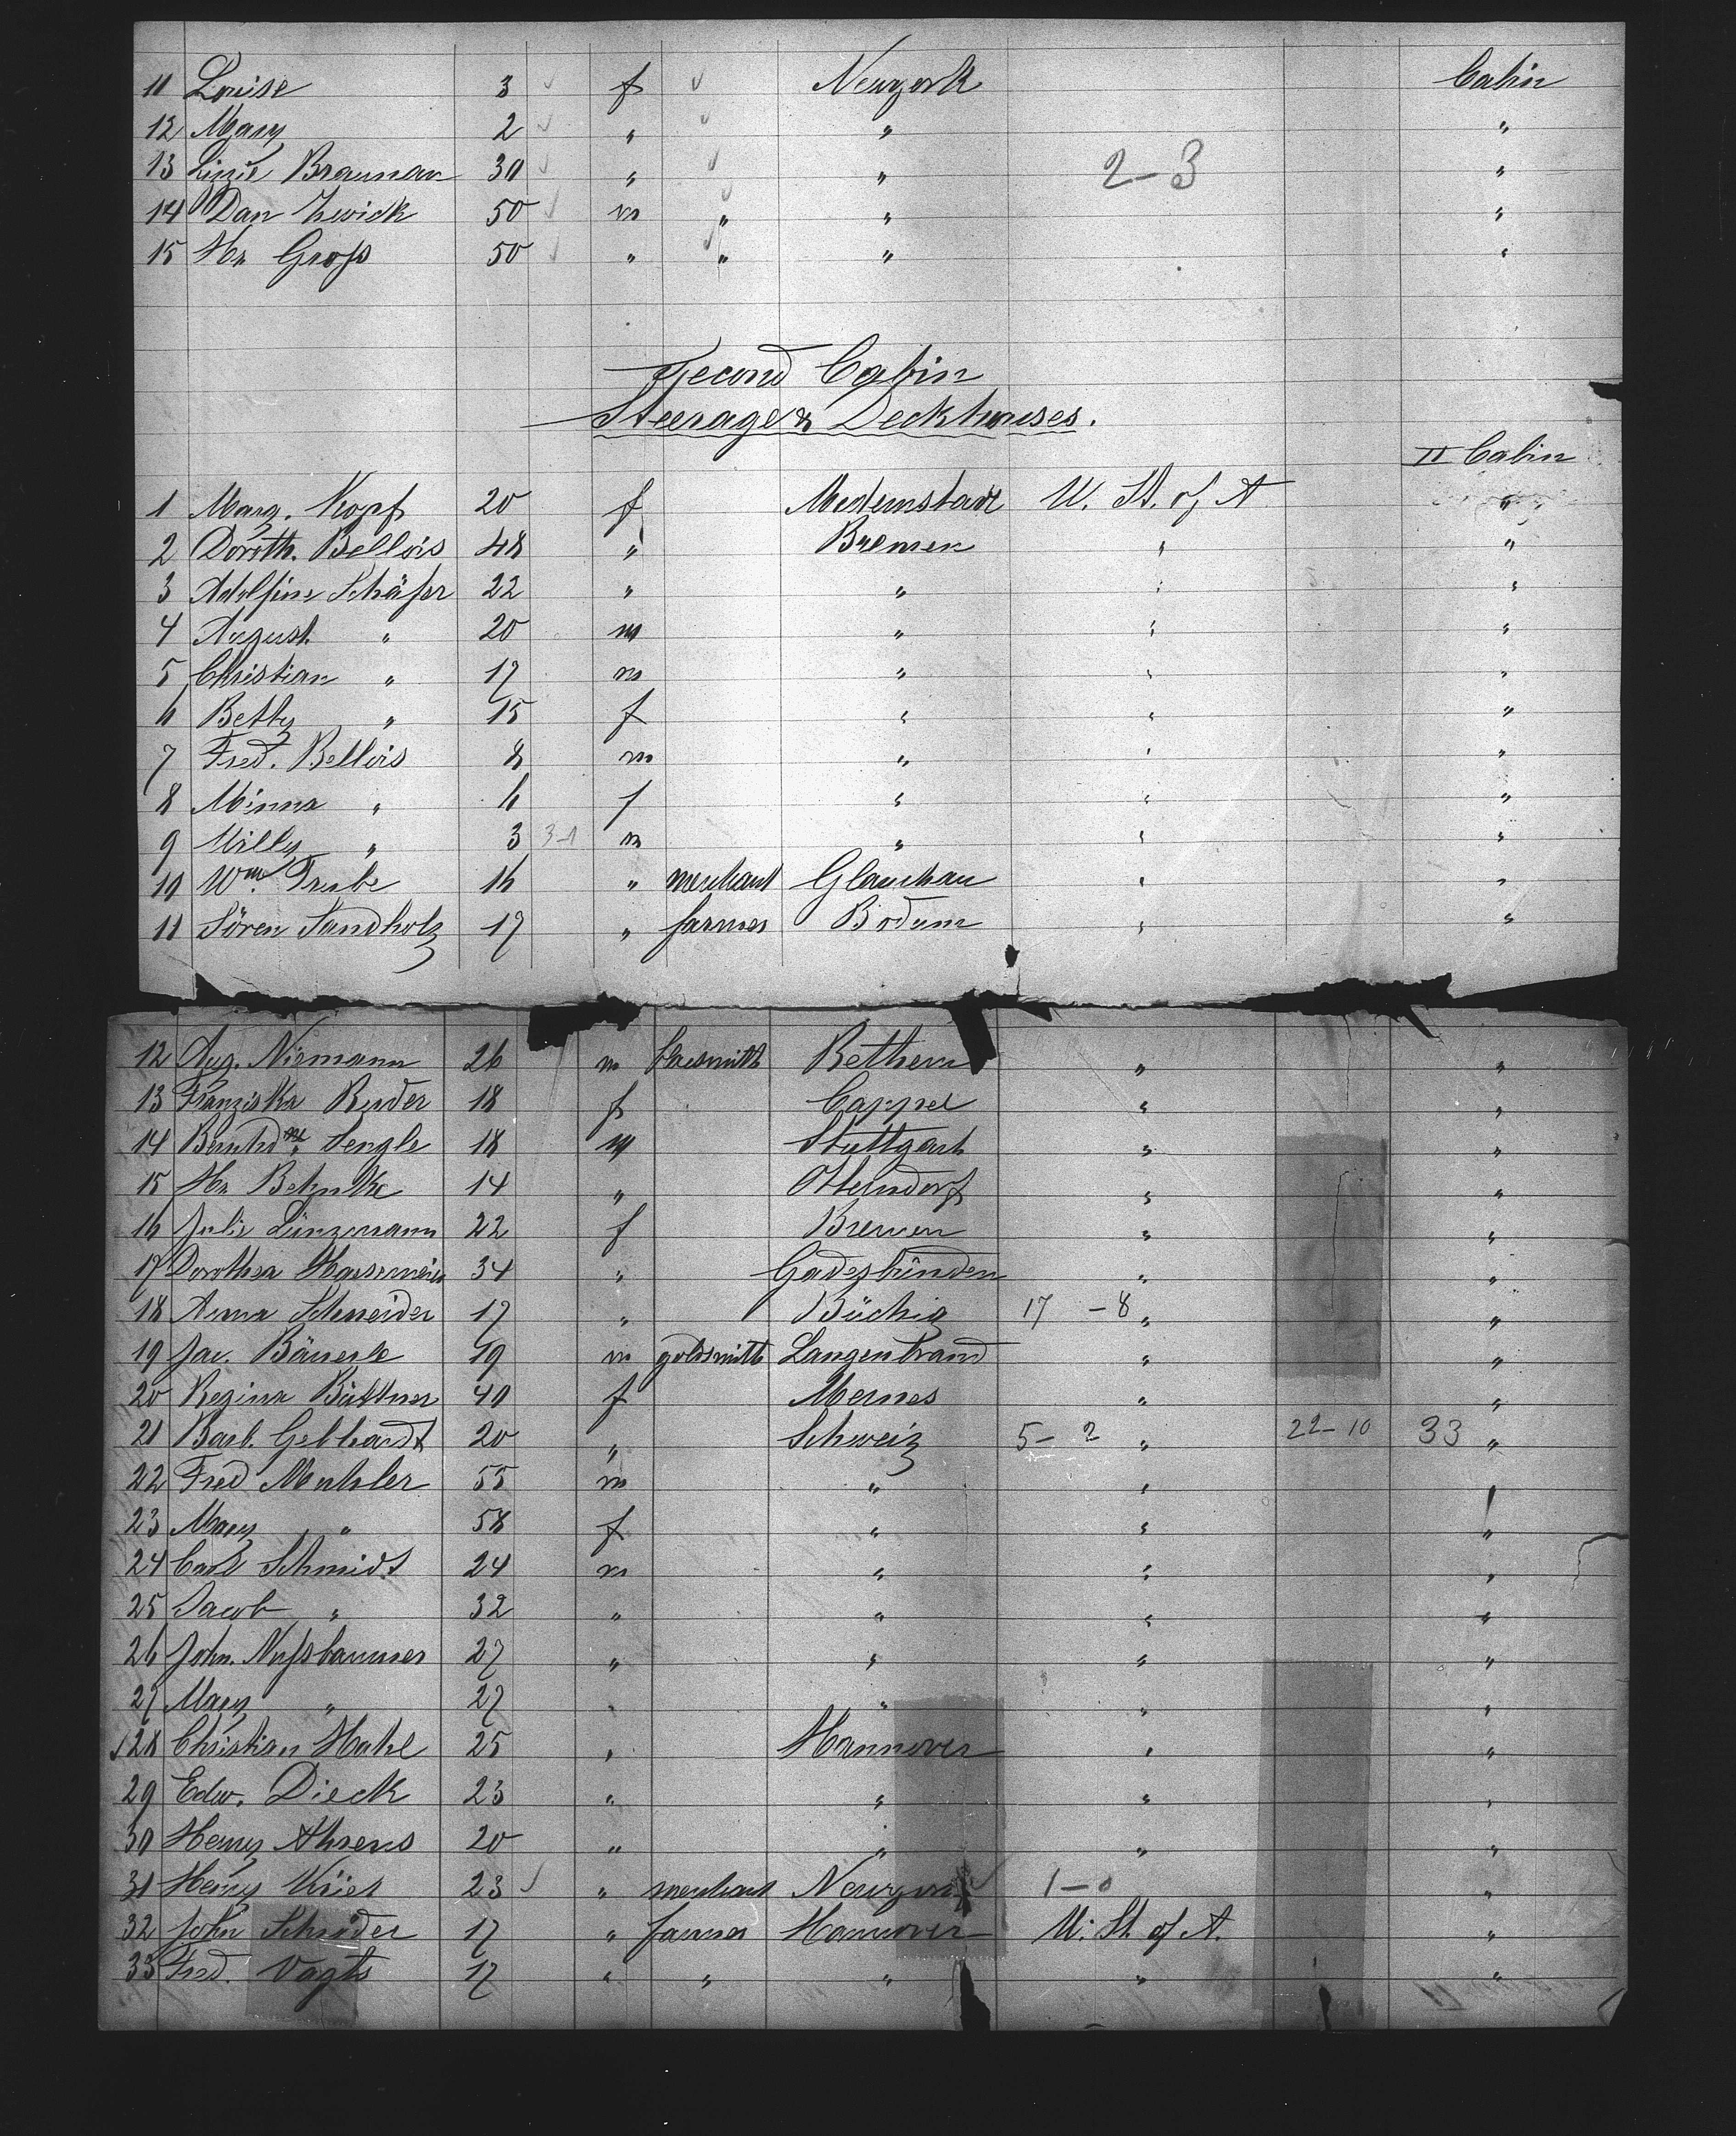 11 Louise 3 f Newyork Cabin
12 Mary 2 " " "
13 Linzie Braunau 30 " " 2-3 "
14 Dan Zwick 50 m " " "
15 Hr Groß 50 " " " "
Second Cabin
Steerage & Deckhouses.
II Cabin
1 Marg. Kopf 20 f Medemstade U. St. of A "
2 Doroth. Bellois 48 " Bremen " "
3 Adolfine Schäfer 22 " " " "
4 August " 20 m " " "
5 Christian " 17 m " " "
6 Betty " 15 f " " "
7 Fred. Bellois 8 m " " "
8 Minna " 6 f " " "
9 Willy " 3 3-1 m " " "
10 Wm. Trube 16 " merchant Glauchau " "
11 Sören Sandholz 17 " farmer Bodum " "
12 Aug. Niemann 26 m Rethem " "
13 Franziska Ruder 18 f Cappel " "
14 Bernhdne. Sengle 18 m Stuttgart " "
15 Hr Behnke 14 " Otterndorf " "
16 Julie Lünzmann 22 f Bremen " "
17 Dorothea 34 " Gadesbünden " "
18 Anna Schneider 17 " Büchig 17 -8 " "
19 Jac. Bäuerle 19 m goldsmith Langenbrand " "
20 Regina Büttner 40 f Mernes " "
21 Barb. Gebhardt 20 " Schweiz 5-2 " 22-10 33 "
22 Fred Muhler 55 m " " "
23 Mary " 58 f " " "
24 Carl Schmidt 24 m " " "
25 Jacob " 32 " " " "
26 John. Nußbaumer 27 " " " "
27 Mary " 27 " " " "
28 Christian Hake 25 " Hannover " "
29 Edw. Dieck 23 " " " "
30 Henry Ahrens 20 " " " "
31 Henry 23 " merchant Newyork 1-0 "
32 John Schröder 17 " farmer Hannover U. St. of A. "
33 Fred. Vagts 17 " " " " "